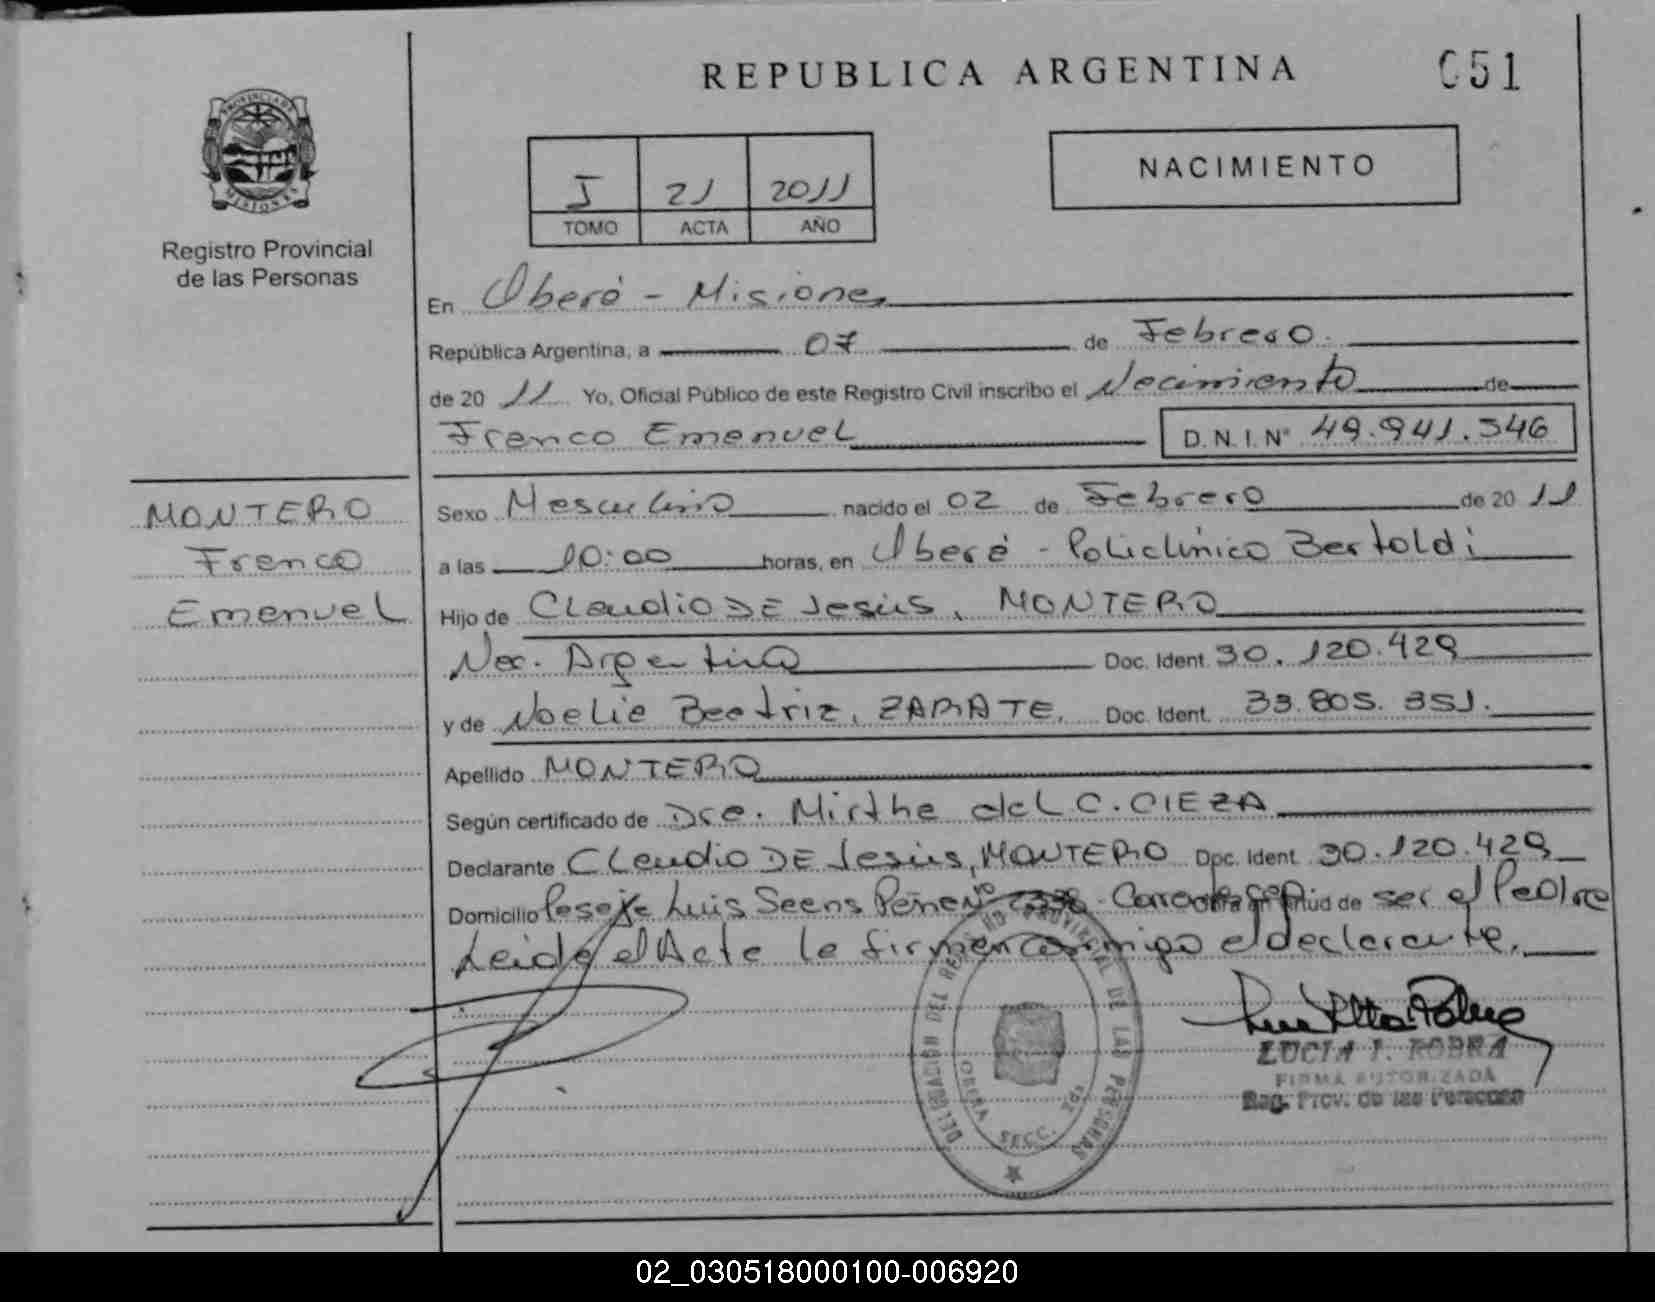 REPUBLICA ARGENTINA
051
PROVINCIA DE
MISIONES
Registro Provincial
de las Personas
I 21 2011
TOMO ACTA AÑO
NACIMIENTO
En Oberá - Misiones
República Argentina, a 07 de Febrero.
de 20 11 Yo, Oficial Público de este Registro Civil inscribo el Nacimiento de
Franco Emanuel D.N.I. Nº 49.941.346
MONTERO
Franco
Emanuel
Sexo Masculino nacido el 02 de Febrero de 20 11
a las 10:00 horas, en Oberá - Policlínico Bertoldi
Hijo de Claudio DE Jesús, MONTERO
Nac. Argentina Doc. Ident. 30.120.429
y de Noelia Beatriz, ZARATE, Doc. Ident. 33.805.351.
Apellido MONTERO
Según certificado de Dra. Mirtha del C. CIEZA
Declarante Claudio DE Jesús, MONTERO Doc. Ident. 30.120.429
Domicilio Pasaje Luis Saens Peña Nº obra en virtud de ser el Padre
Leida el Acta la firman conmigo el declarante.
DELEGACION DEL REGISTRO PROVINCIAL DE LAS PERSONAS
OBERA SECC.
LUCIA I. ROBRA
FIRMA AUTORIZADA
Reg. Prov. de las Personas
02_030518000100-006920